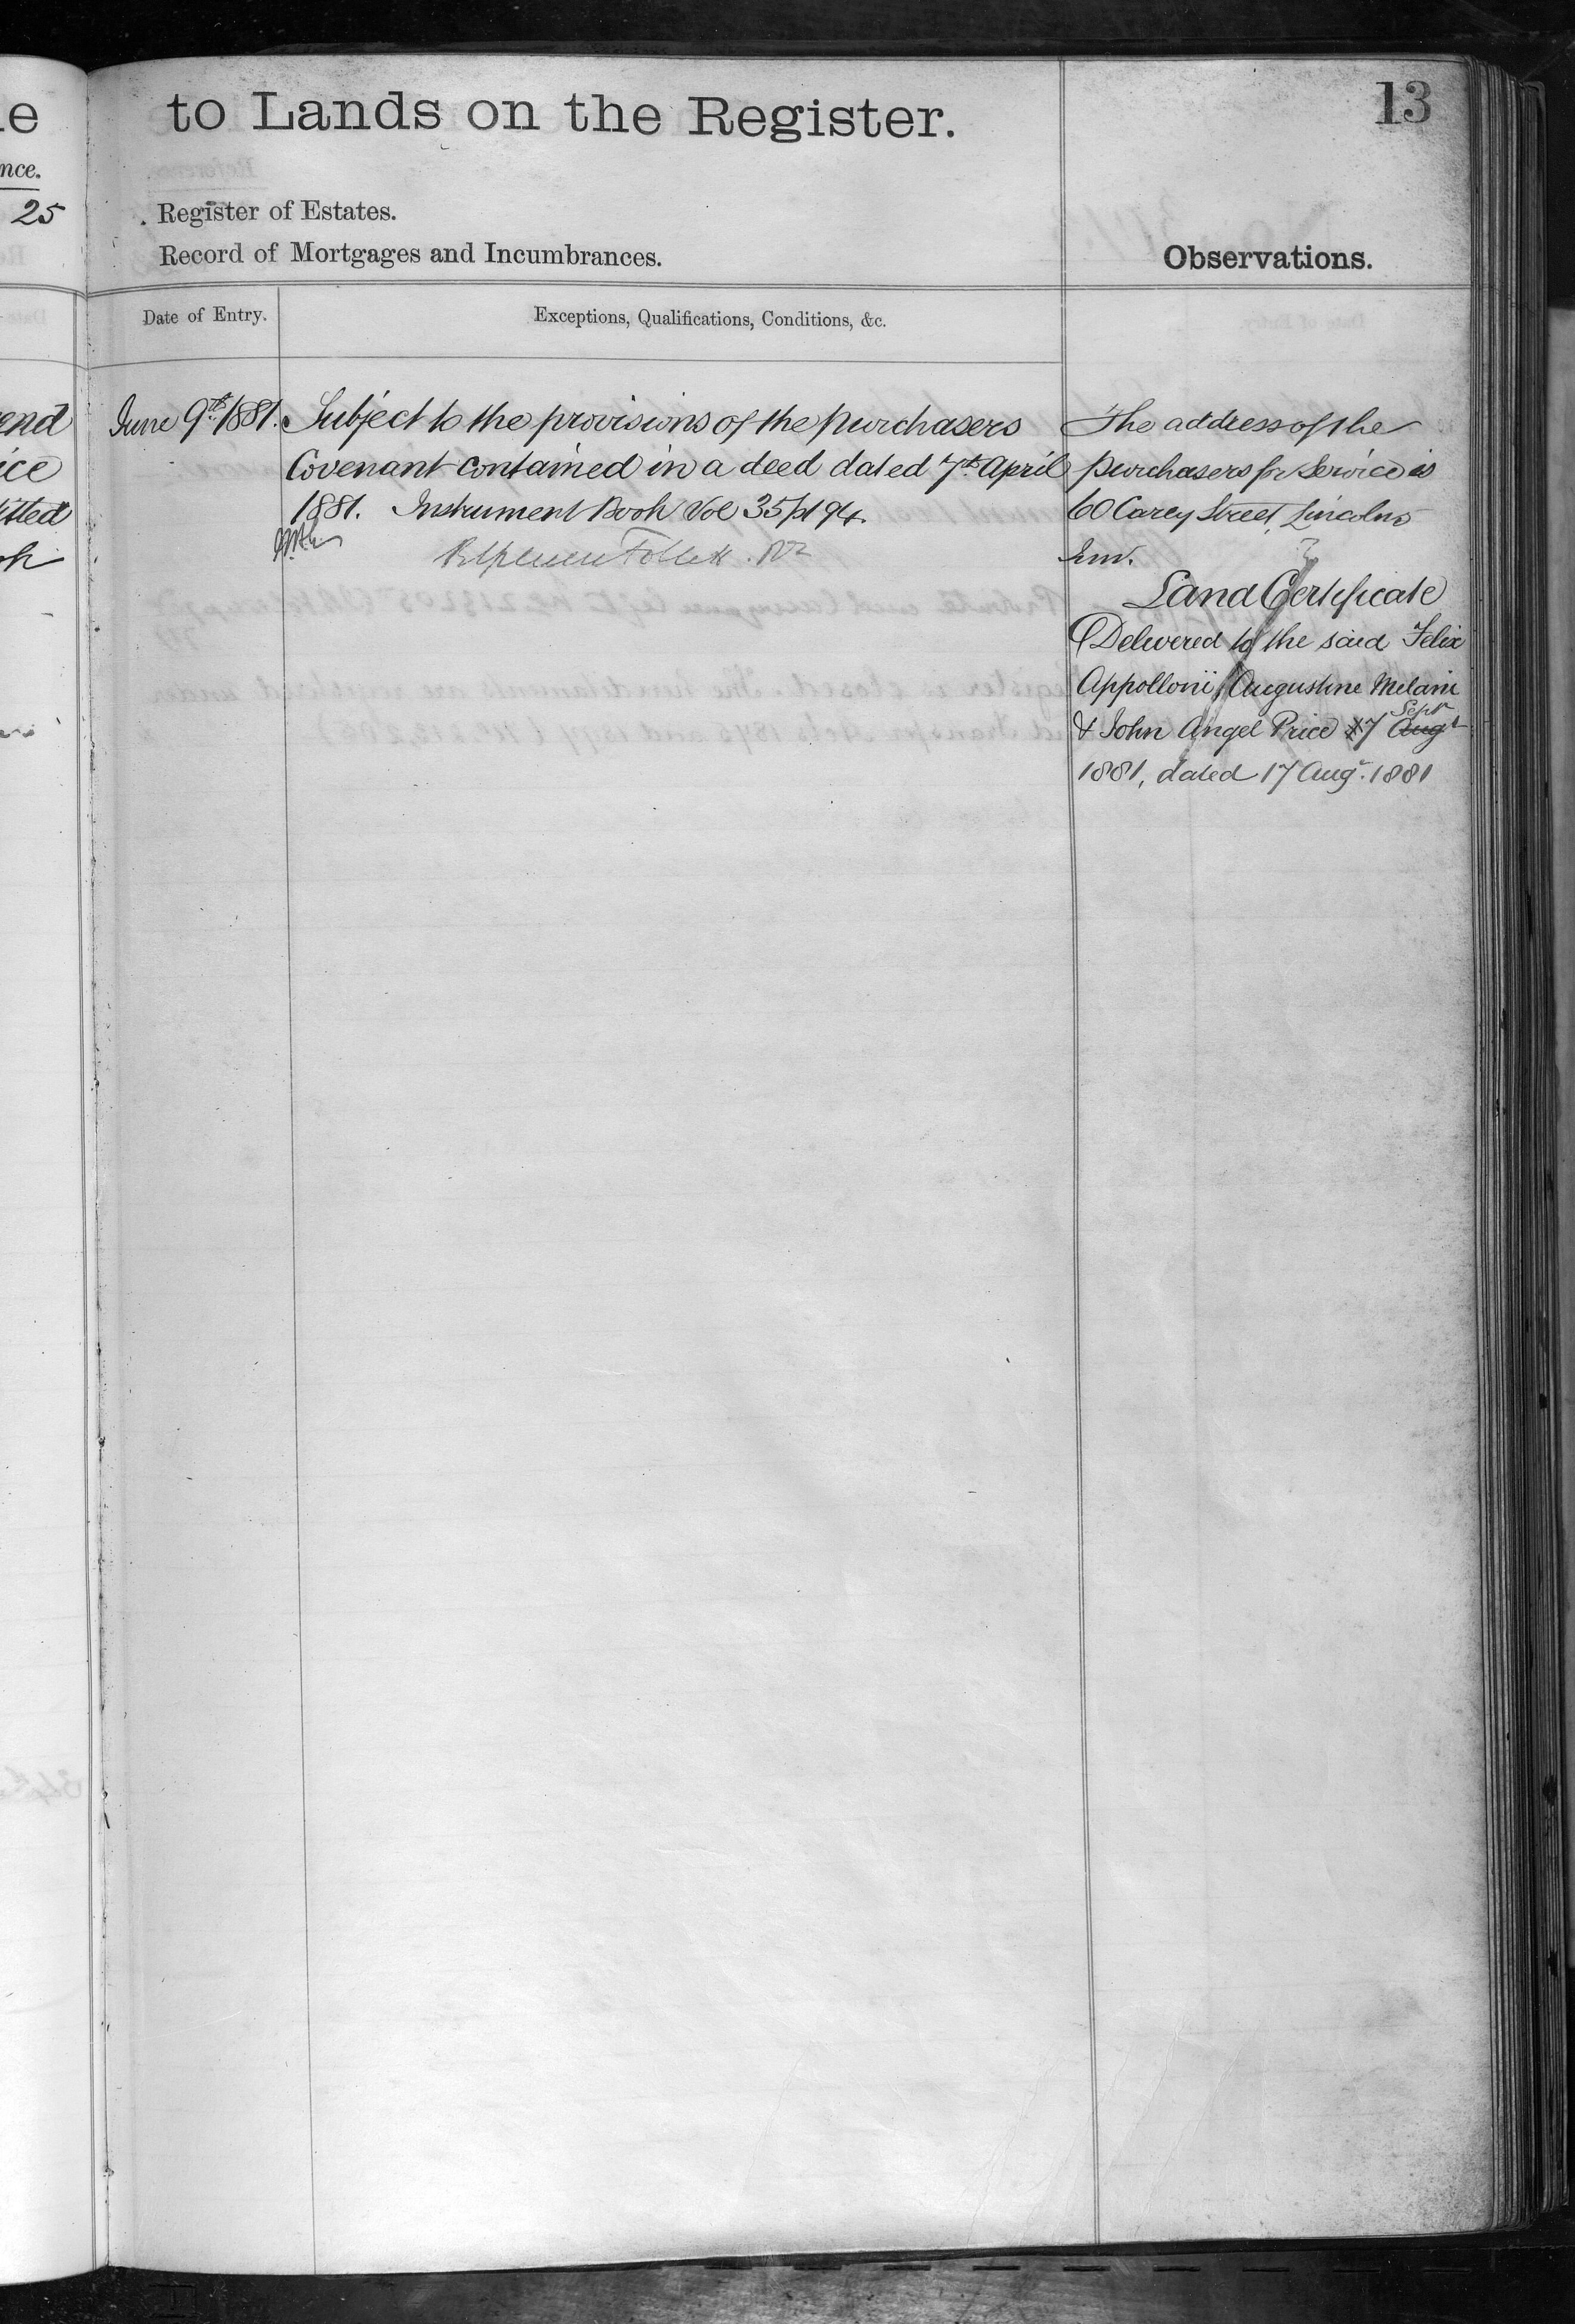 to Lands on the Register.
13
25
Register of Estates.
Record of Mortgages and Incumbrances.
Observations.
Date of Entry.
Exceptions, Qualifications, Conditions, &c.
June 9th 1881. Subject to the provisions of the purchasers
Covenant contained in a deed dated 7th April
1881. Instrument Book Vol 35 p 194.
The address of the
purchasers for Service is
60 Carey Street, Lincolns
Inn.
Land Certificate
Delivered to the said Felix
Appollonii, Augustine Melani
& John Angel Price 7 Augt Septr
1881, dated 17 Augt. 1881